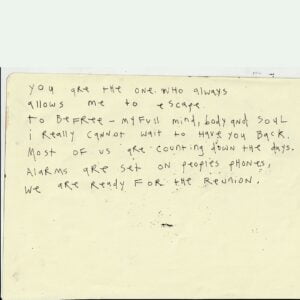 you are the one who always
allows me to escape.
to Be FREE - my full mind, body and SOUL
i Really cannot wait to Have you Back.
Most of us are counting down the days.
Alarms are set on peoples phones,
We are Ready FOR the Reunion.